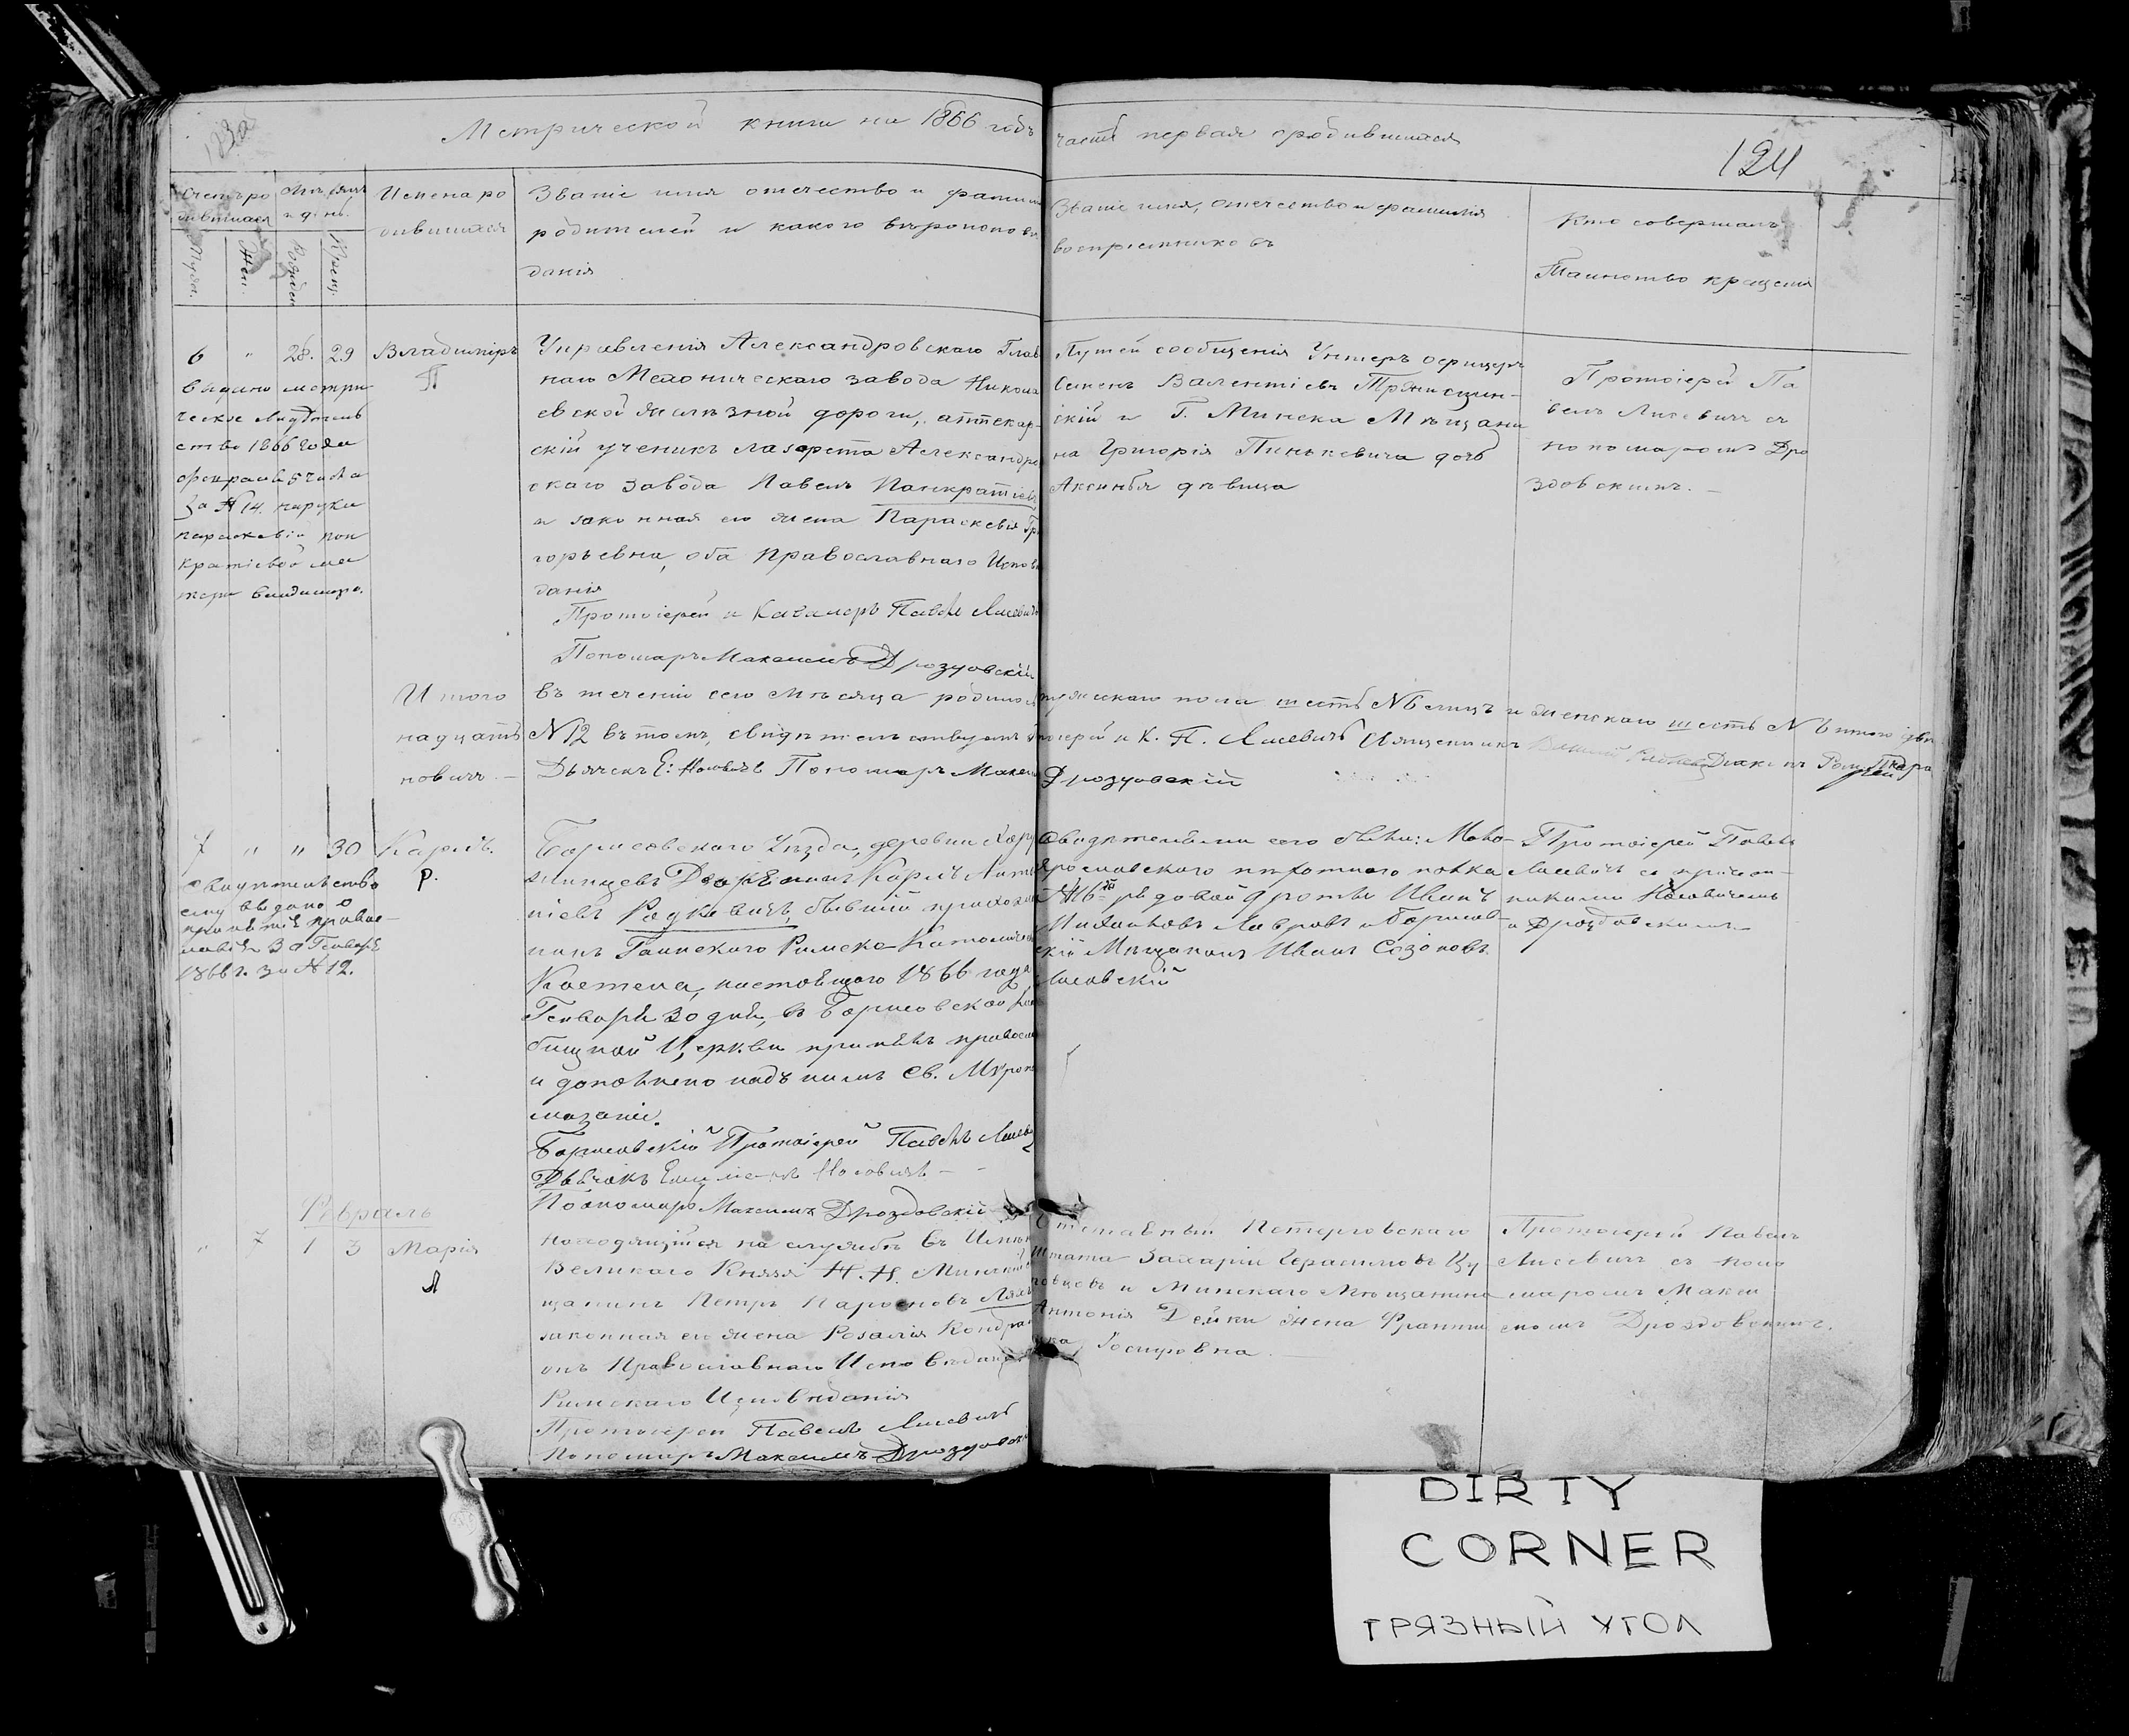 Метрической книги на 1866 годъ
часть первая о родившихся
124
Счетъ родившихся
Мѣсяцъ и день
Имена родившихся
Званіе имя отечество и фамилія
родителей и какого вѣроисповѣ
данія
Званіе имя, отечество и фамилія
воспріемниковъ
Кто совершалъ
Таинство крещенія
Муж.
Жен.
Рожден
Крещ.
6 " 28. 29 Владиміръ
П
выдано метри
ческое свидѣтель
ство 1866 года
февраля 5 числа
за № 14. на руки
параскевіи пан
кратіевой ма
тери владиміра.
Управленія Александровскаго Глав
наго Механическаго завода Никола
евской желѣзной дороги, аптекар-
скій ученикъ лазарета Александро
скаго завода Павелъ Панкратіевъ
и законная его жена Параскевія Гри
горьевна, оба Православнаго Исповѣ
данія
Протоіерей и Кавалеръ Павелъ Лисевичъ
Пономарь Максимъ Дроздовскій
Путей сообщенія Унтеръ офицеръ
Семенъ Валентіевъ
скій и Г. Минска Мѣщани
на Григорія Пинькевича дочь
Аксинья дѣвица
Протоіерей Па
велъ Лисевичъ съ
пономаремъ Дро
здовскимъ. —
Итого въ теченіи сего мѣсяца родилось мужескаго пола шесть №6 лицъ и женскаго шесть № 6 итого двѣ
надцать №12 въ томъ, свидѣтельствуемъ Протоіерей и К. П. Лисевичъ Священникъ Діаконъ
новичъ. — Дьячекъ Е: Носовичъ Пономарь Максимъ Дроздовскій
7 " " 30 Карлъ.
Р.
свидѣтельство
ему выдано о
принятіи правос-
лавія 30 Генваря
1866 г. за № 12.
Борисовскаго Уѣзда, деревни
Дворянинъ Карлъ
Родкевичъ, бывшій прихожа
нинъ Гаинскаго Римско-Католическаго
Костела, настоящаго 1866 года
Генваря 30 дня, въ Борисовской
бищной Церкви принялъ правосл
и дополнено надъ нимъ Св. Мѵропо
мазаніе.
Борисовскій Протоіерей Павелъ Лисевичъ
Дьячокъ Носовичъ —
Пономарь Максимъ Дроздовскій
Свидѣтелями сего были: Мало-
ярославскаго пѣхотнаго полка
рядовой Иванъ
Михайловъ Лавровъ и Борисов-
скій Мѣщанинъ Иванъ Созоновъ
Лисовскій
Протоіерей Павелъ
Лисевичъ съ причет-
никами Носовичемъ
и Дроздовскимъ
Февраль
" 7 1 3 Марія
Л
находящійся на службѣ въ Имѣніи
Великаго Князя Н. Н. Минскій
щанинъ Петръ
законная его жена Розалія
онъ Православнаго Исповѣданія
Римскаго Исповѣданія
Протоіерей Павелъ Лисевичъ
Пономарь Максимъ Дроздовскій
Отставный Петергофскаго
Штата Захарій Герасимовъ
и Минскаго Мѣщанина
Антонія Дейки жена Францишка
Протоіерей Павелъ
Лисевичъ съ поно
маремъ Макси
момъ Дроздовскимъ.
DIRTY
CORNER
ГРЯЗНЫЙ УГОЛ